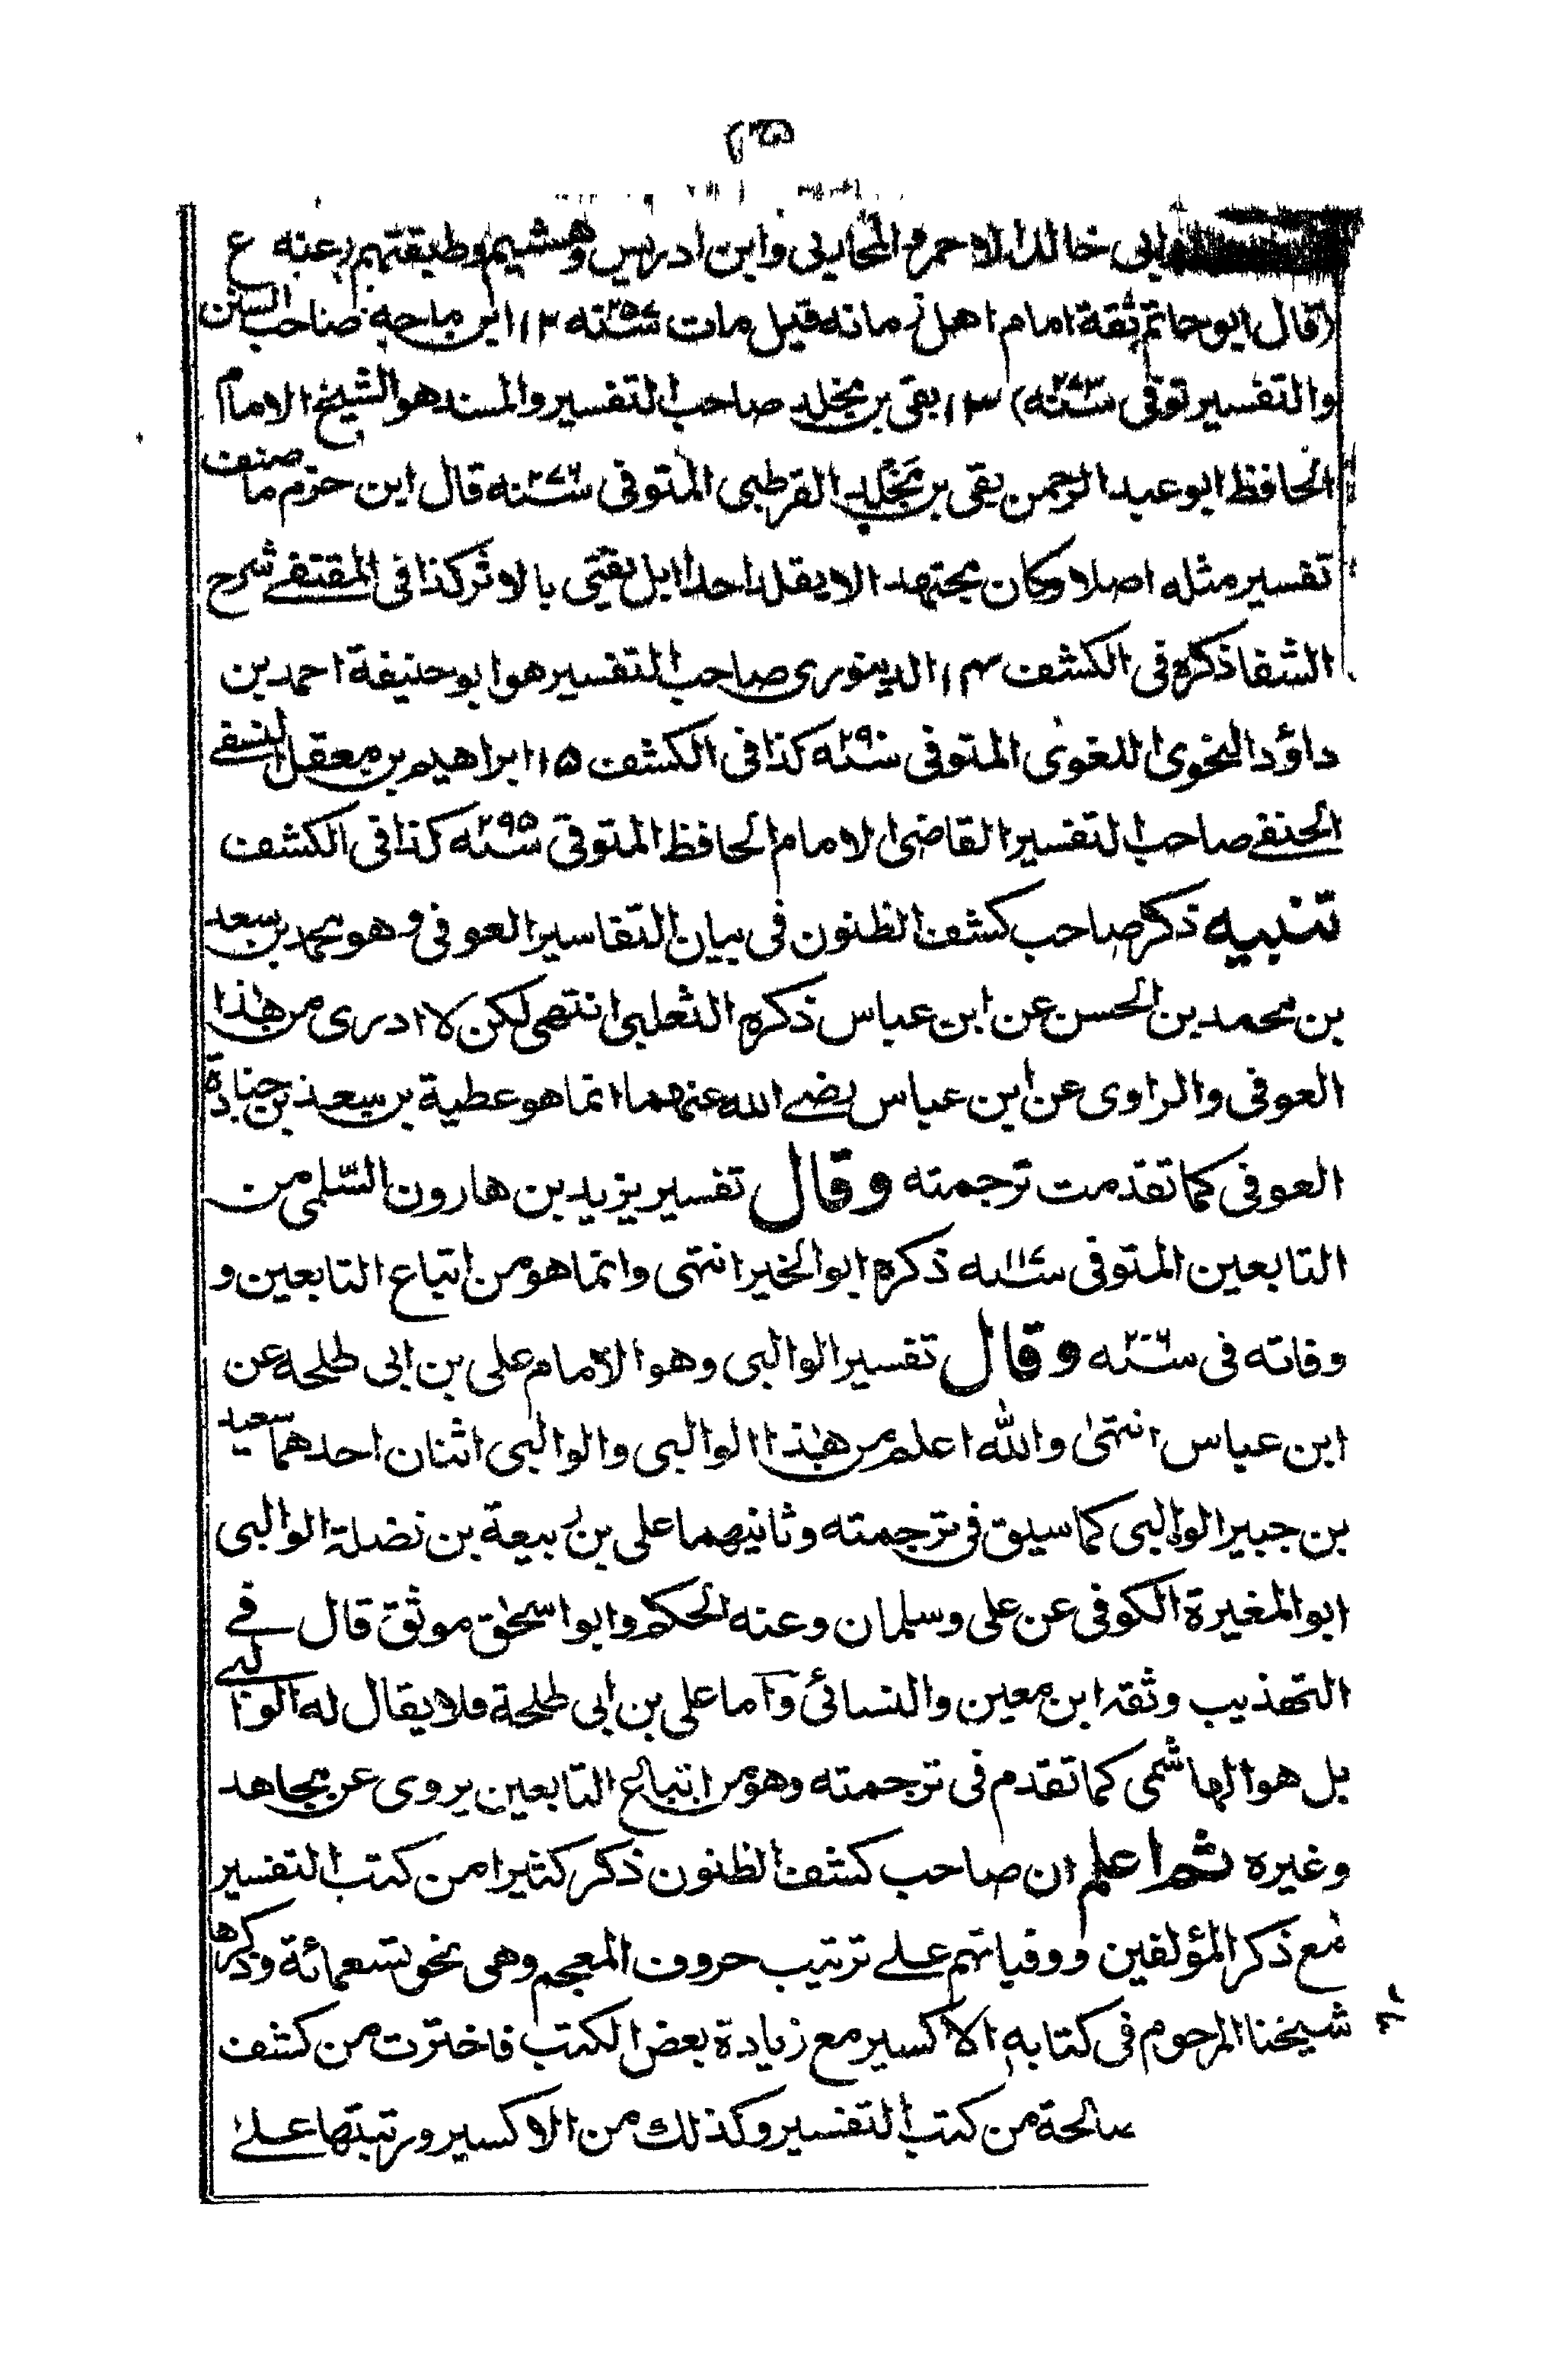 ٣٥
وابي خالد الاحمر والمحاربي وابن ادريس وهشيم وطبقتهم وعنه ع
(قال ابو حاتم ثقة امام اهل زمانه قيل مات سنه ٢٥٧ ١٢ ابن ماجه صاحب السنن
والتفسير توفى سنه ٢٧٣) ١٣ بقى بن مخلد صاحب التفسير والمسند هو الشيخ الامام
الحافظ ابو عبد الرحمن بقى بن مخلد القرطبى المتوفى سنه ٢٧٦ قال ابن حزم ما صنف
تفسير مثله اصلا وكان مجتهدا لا يقلد احدا بل يفتى بالاثر كذا فى المقتفى شرح
الشفا ذكره فى الكشف ١٤ الدينورى صاحب التفسير هو ابو حنيفة احمد بن
داؤد النحوى اللغوى المتوفى سنه ٢٩٠ كذا فى الكشف ١٥ ابراهيم بن معقل النسفے
الحنفے صاحب التفسير القاضى الامام الحافظ المتوفى سنه ٢٩٥ كذا فى الكشف
تنبيه ذكر صاحب كشف الظنون فى بيان التفاسير العوفى وهو محمد بن سعد
بن محمد بن الحسن عن ابن عباس ذكره الثعلبى انتهى لكن لا ادرى من هذا
العوفى والراوى عن ابن عباس رضے الله عنهما انما هو عطية بن سعد بن جنادة
العوفى كما تقدمت ترجمته وقال تفسير يزيد بن هارون السلمى من
التابعين المتوفى سنه ١١٧ ذكره ابو الخير انتهى وانما هو من اتباع التابعين و
وفاته فى سنه ٢٠٦ وقال تفسير الوالبى وهو الامام على بن ابى طلحه عن
ابن عباس انتهى والله اعلم من هذا الوالبى والوالبى اثنان احدهما سعيد
بن جبير الوالبى كما سبق فى ترجمته وثانيهما على بن ربيعة بن نضلة الوالبى
ابو المغيرة الكوفى عن على وسلمان وعنه الحكم وابو اسحق موثق قال فے
التهذيب وثقه ابن معين والنسائى واما على بن ابى طلحة فلا يقال له الوالبے
بل هو الهاشمى كما تقدم فى ترجمته وهو من اتباع التابعين يروى عن مجاهد
وغيره ثم اعلم ان صاحب كشف الظنون ذكر كثيرا من كتب التفسير
مع ذكر المؤلفين ووفياتهم علے ترتيب حروف المعجم وهى نحو تسعمائة وذكرها
شيخنا المرحوم فى كتابه الاكسير مع زيادة بعض الكتب فاخترت من كشف
صالحة من كتب التفسير وكذلك من الاكسير ورتبتها علے